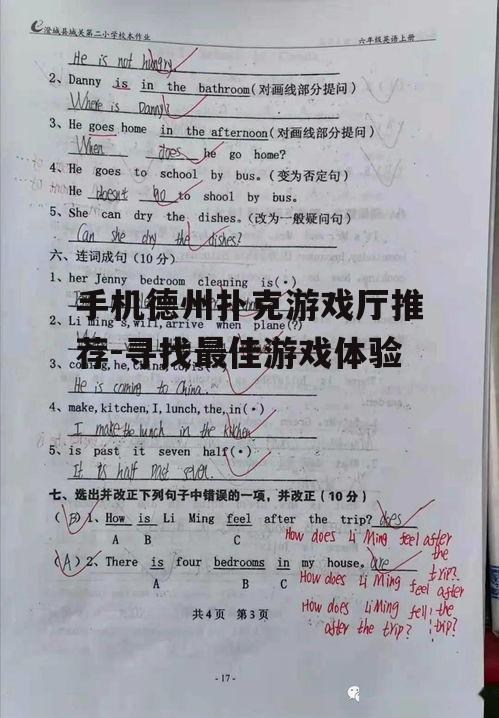 澄城县城关第二小学校本作业 六年级英语上册
He is not hungry
2、Danny is in the bathroom(对画线部分提问)
Where is Danny?
3、He goes home in the afternoon(对画线部分提问)
When does he go home?
4、He goes to school by bus。(变为否定句)
He doesn't go to shool by bus.
5、She can dry the dishes。(改为一般疑问句)
Can she dry the dishes?
六、连词成句(10分)
1、her Jenny bedroom cleaning is(·)
手机德州扑克游戏厅推
2、Li Ming's,will,arrive when plane(?)
荐-寻找最佳游戏体验
He is coming to China.
4、make,kitchen,I,lunch,the,in(·)
I make the lunch in the kitchen
5、is past it seven half(·)
It is half past seven.
七、选出并改正下列句子中错误的一项,并改正(10分)
(B)1、How is Li Ming feel after the trip? does
A B C
How does Li Ming feel after the trip?
(A)2、There is four bedrooms in my house。are
A B C
How does Li Ming feel after the trip?
How does LiMing fell
after the trip?
共4页 第3页
-17-